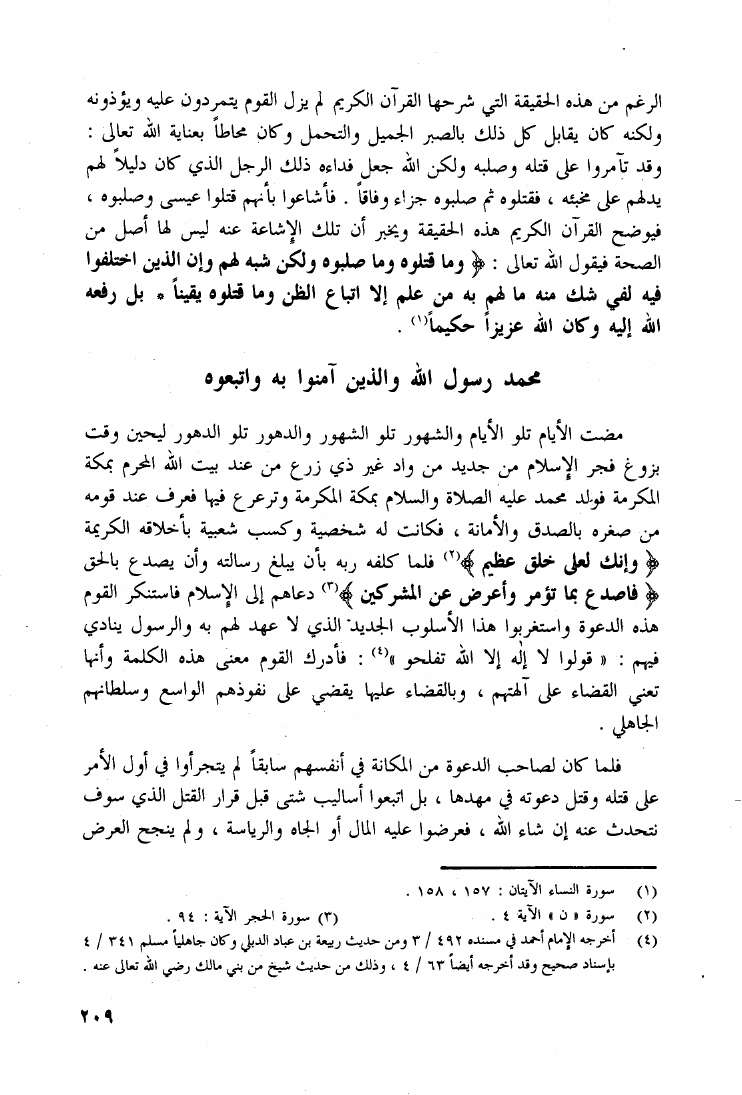 الرغم من هذه الحقيقة التي شرحها القرآن الكريم لم يزل القوم يتمردون عليه ويؤذونه
ولكنه كان يقابل كل ذلك بالصبر الجميل والتحمل وكان محاطاً بعناية الله تعالى :
وقد تآمروا على قتله وصلبه ولكن الله جعل فداءه ذلك الرجل الذي كان دليلاً لهم
يدلهم على مخبئه ، فقتلوه ثم صلبوه جزاء وفاقاً . فأشاعوا بأنهم قتلوا عيسى وصلبوه ،
فيوضح القرآن الكريم هذه الحقيقة ويخبر أن تلك الإشاعة عنه ليس لها أصل من
الصحة فيقول الله تعالى : ﴿ وما قتلوه وما صلبوه ولكن شبه لهم وإن الذين اختلفوا
فيه لفي شك منه ما لهم به من علم إلا اتباع الظن وما قتلوه يقيناً * بل رفعه
الله إليه وكان الله عزيزاً حكيماً(١) .
محمد رسول الله والذين آمنوا به واتبعوه
مضت الأيام تلو الأيام والشهور تلو الشهور والدهور تلو الدهور ليحين وقت
بزوغ فجر الإسلام من جديد من واد غير ذي زرع من عند بيت الله المحرم بمكة
المكرمة فولد محمد عليه الصلاة والسلام بمكة المكرمة وترعرع فيها فعرف عند قومه
من صغره بالصدق والأمانة ، فكانت له شخصية وكسب شعبية بأخلاقه الكريمة
﴿ وإنك لعلى خلق عظيم ﴾(٢) فلما كلفه ربه بأن يبلغ رسالته وأن يصدع بالحق
﴿ فاصدع بما تؤمر وأعرض عن المشركين ﴾(٣) دعاهم إلى الإسلام فاستنكر القوم
هذه الدعوة واستغربوا هذا الأسلوب الجديد الذي لا عهد لهم به والرسول ينادي
فيهم : « قولوا لا إله إلا الله تفلحو »(٤) : فأدرك القوم معنى هذه الكلمة وأنها
تعني القضاء على آلهتهم ، وبالقضاء عليها يقضي على نفوذهم الواسع وسلطانهم
الجاهلي .
فلما كان لصاحب الدعوة من المكانة في أنفسهم سابقاً لم يتجرأوا في أول الأمر
على قتله وقتل دعوته في مهدها ، بل اتبعوا أساليب شتى قبل قرار القتل الذي سوف
نتحدث عنه إن شاء الله ، فعرضوا عليه المال أو الجاه والرياسة ، ولم ينجح العرض
(١) سورة النساء الآيتان : ١٥٧ ، ١٥٨ .
(٢) سورة « ن » الآية ٤ . (٣) سورة الحجر الآية : ٩٤ .
(٤) أخرجه الإمام أحمد في مسنده ٤٩٢ / ٣ ومن حديث ربيعة بن عباد الديلي وكان جاهلياً مسلم ٣٤١ / ٤
بإسناد صحيح وقد أخرجه أيضاً ٦٣ / ٤ ، وذلك من حديث شيخ من بني مالك رضي الله تعالى عنه .
٢٠٩